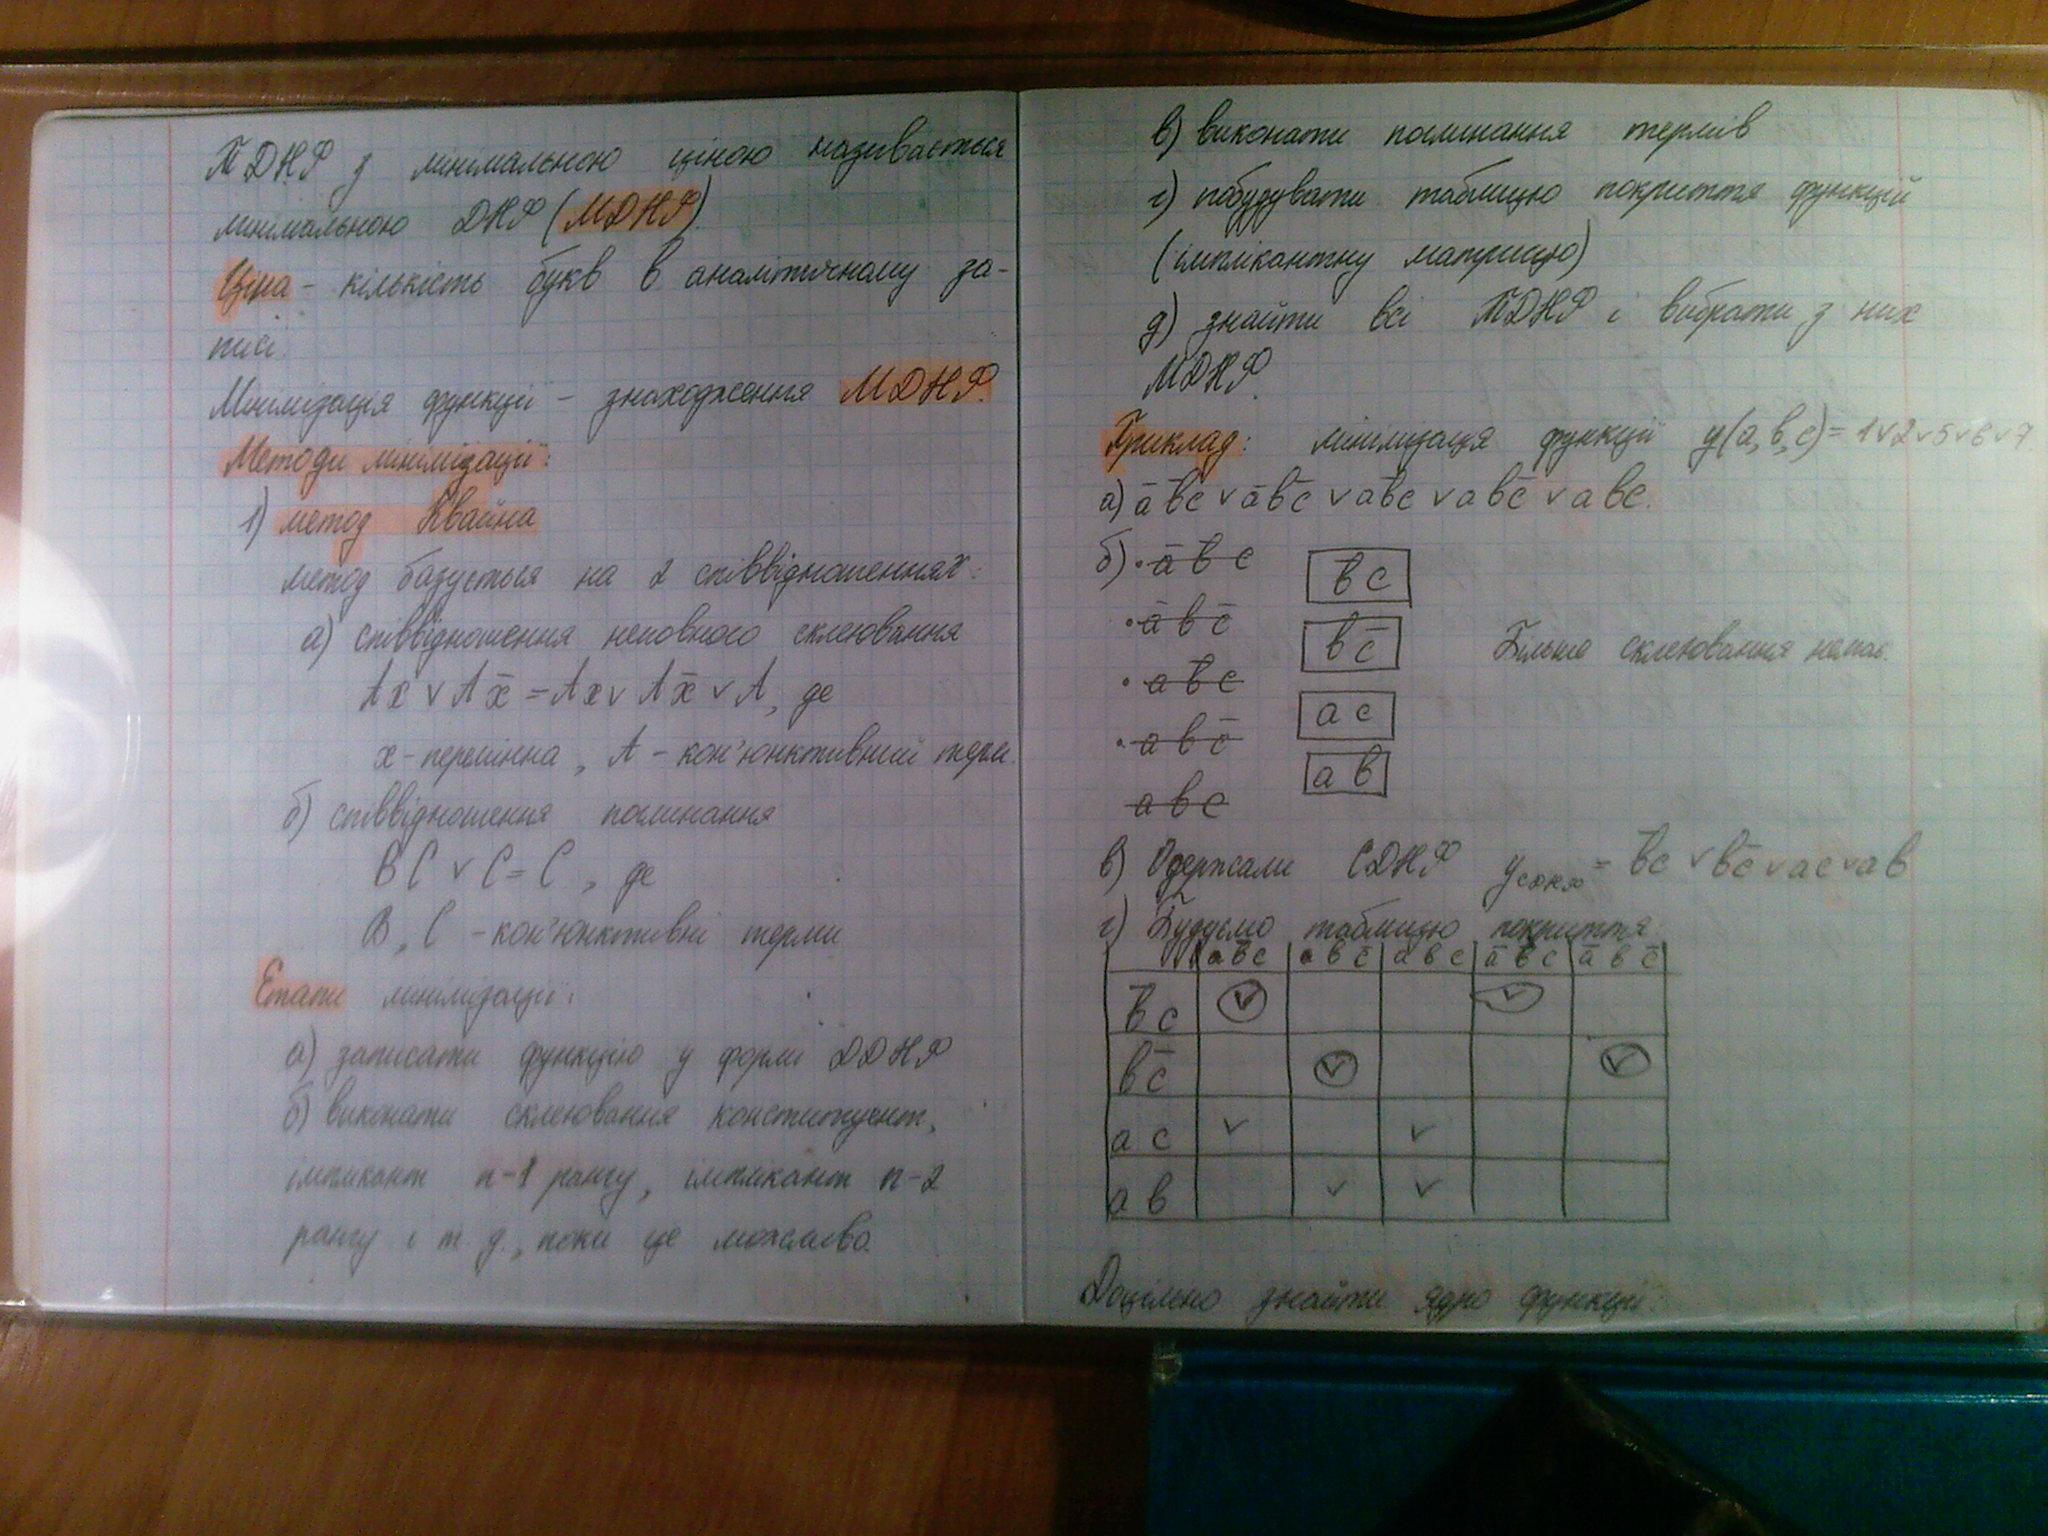 ТДНФ з мінімальною ціною називається
мінімальною ДНФ (МДНФ)
Ціна – кількість букв в аналітичному за-
писі.
Мінімізація функції – знаходження МДНФ.
Методи мінімізації:
1) метод Квайна
метод базується на 2 співвідношеннях:
а) співвідношення неповного склеювання
Ax ∨ Ax̄ = Ax ∨ Ax̄ ∨ A, де
x - перемінна, A – кон'юнктивний терм.
б) співвідношення поглинання
BC ∨ C = C, де
B, C – кон'юнктивні терми
Етапи мінімізації:
а) записати функцію у формі ДДНФ
б) виконати склеювання конституент,
імплікант n-1 рангу, імплікант n-2
рангу і т. д., поки це можливо.
в) виконати поглинання термів
г) побудувати таблицю покриття функцій
(імплікантну матрицю)
д) знайти всі ТДНФ і вибрати з них
МДНФ.
Приклад: мінімізація функції y(a,b,c) = 1∨2∨5∨6∨7.
а) āb̄c ∨ ābc̄ ∨ ab̄c ∨ abc̄ ∨ abc.
б) • āb̄c b̄c
• ābc̄ bc̄ Більше склеювання немає.
• ab̄c ac
• abc̄ ab
abc
в) Одержали СДНФ yСДНФ = b̄c ∨ bc̄ ∨ ac ∨ ab
г) Будуємо таблицю покриття
ab̄c abc̄ abc āb̄c ābc̄
b̄c ✓ ✓
bc̄ ✓ ✓
ac ✓ ✓
ab ✓ ✓
Доцільно знайти ядро функції.